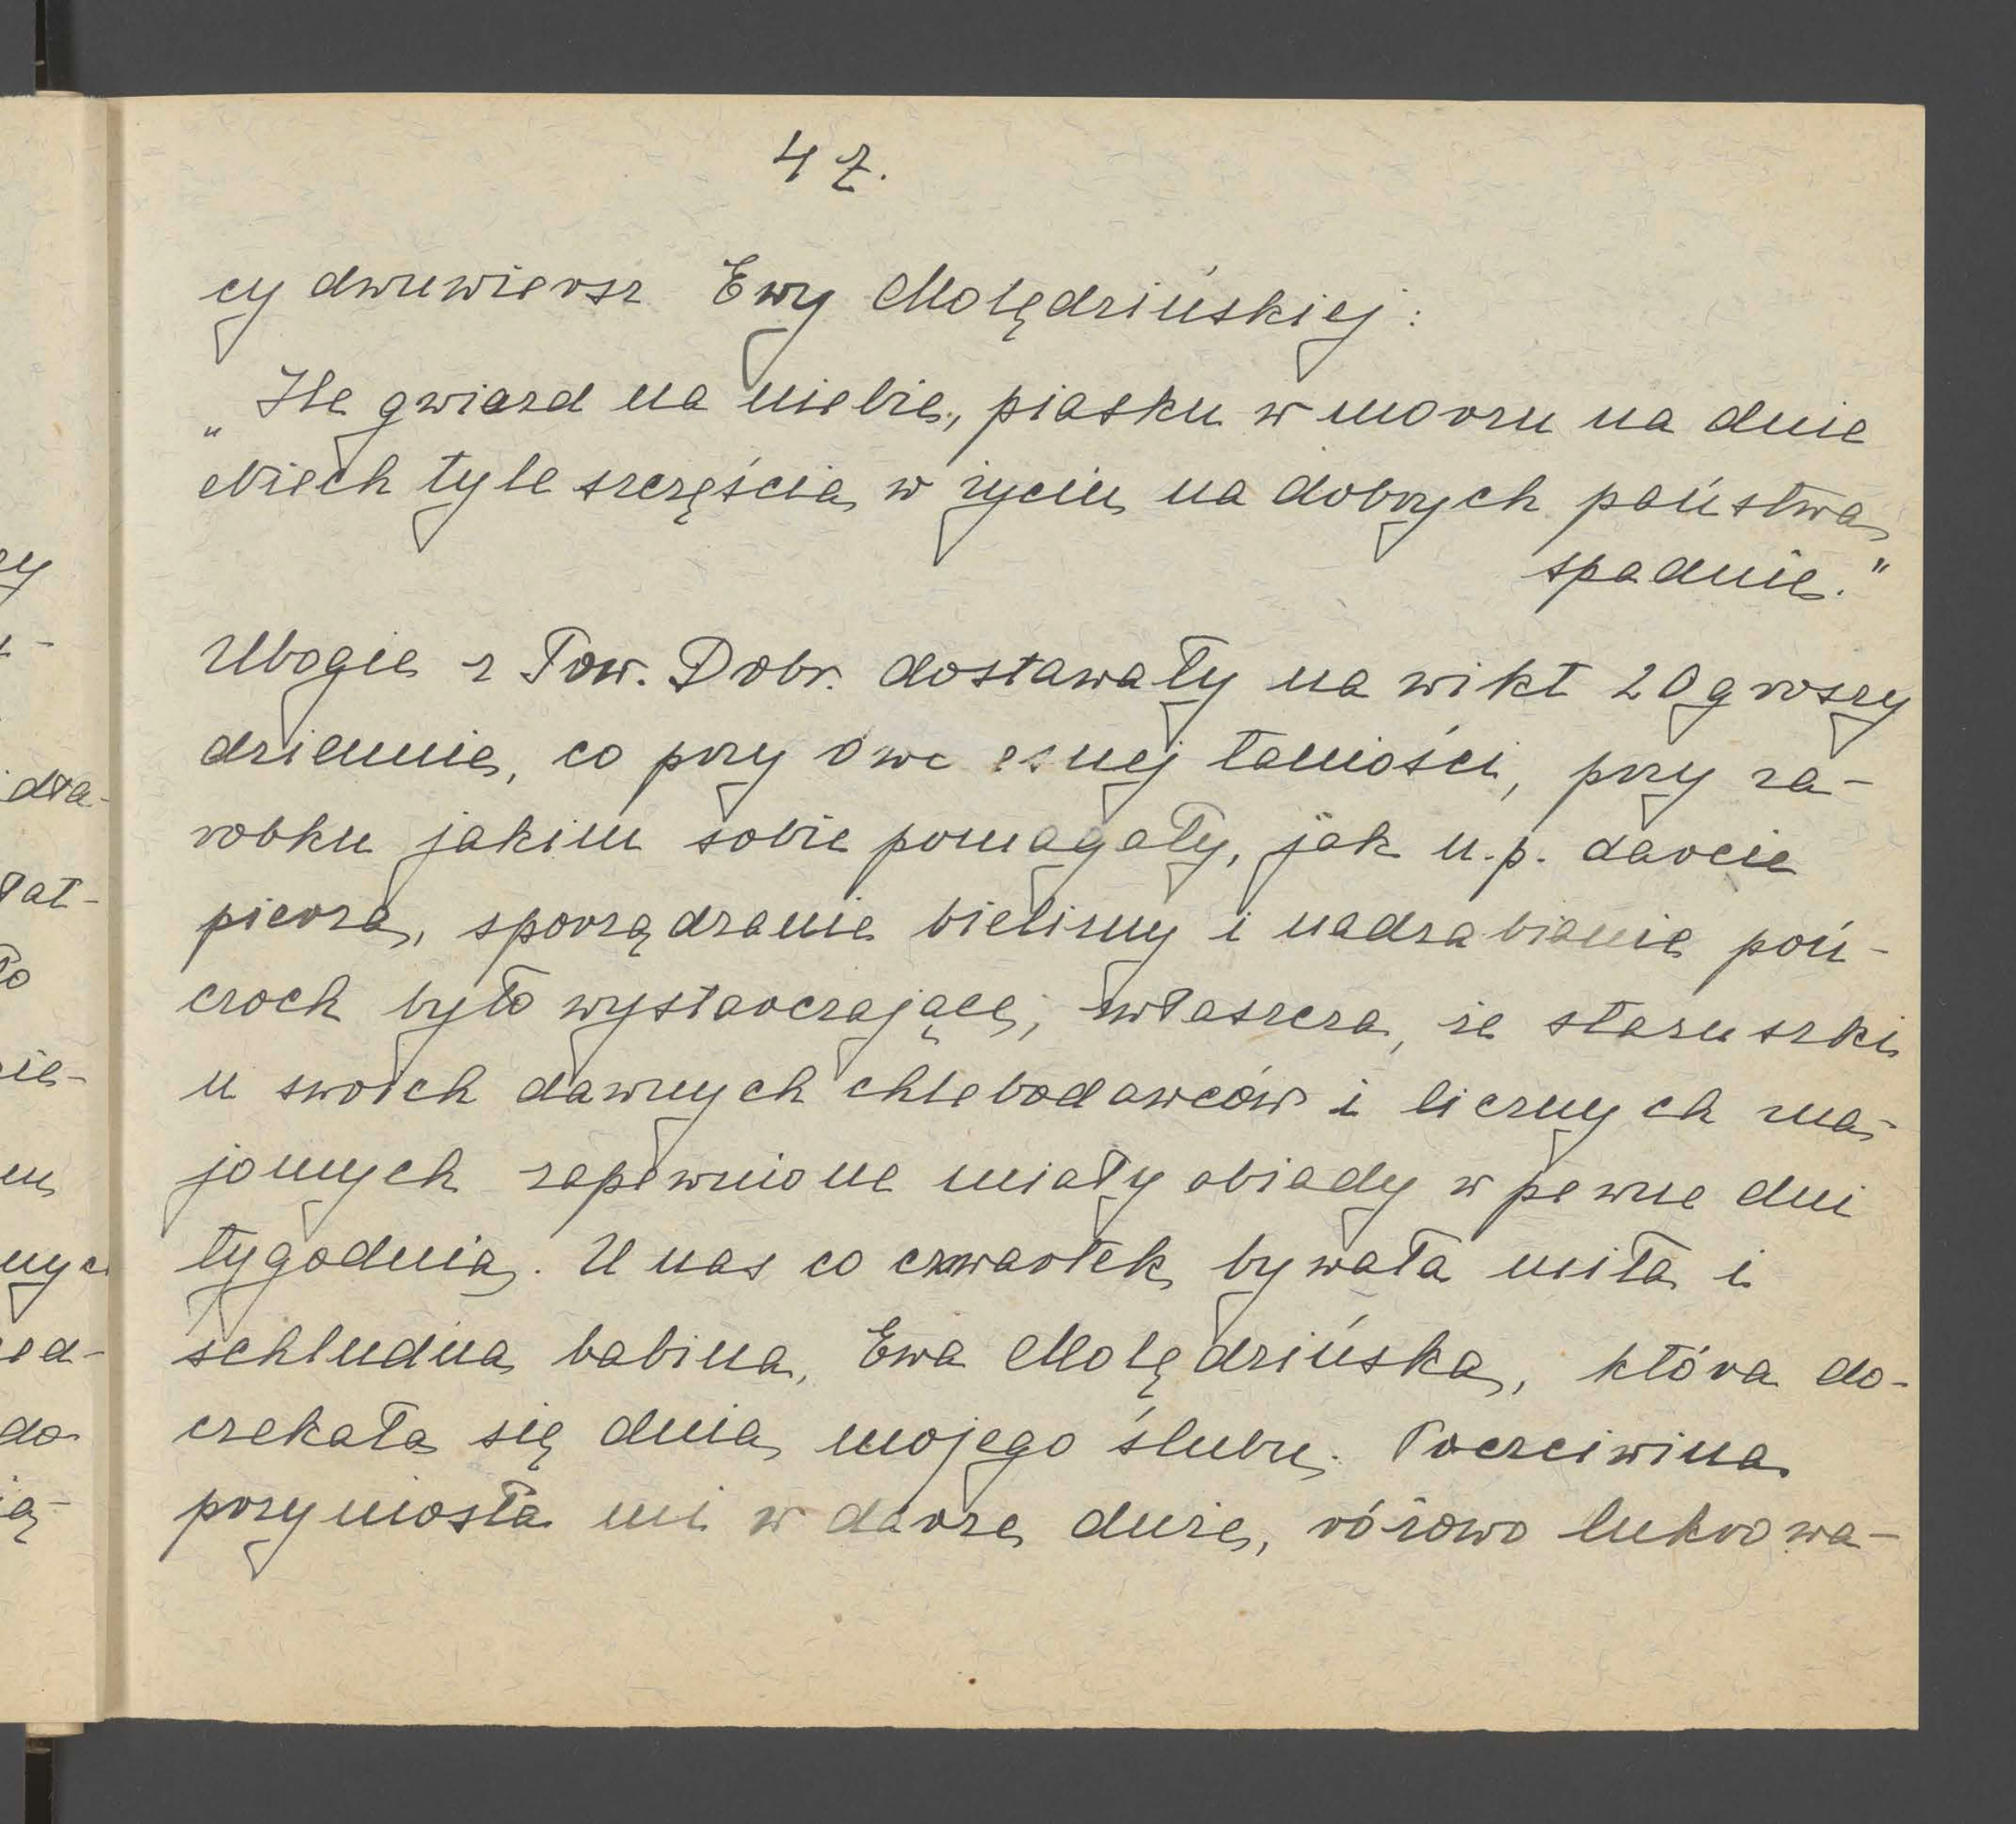 42.
cy dwuwiersz Ewy Molędzińskiej:
„Ile gwiazd na niebie, piasku w morzu na dnie
Niech tyle szczęścia w życiu na dobrych państwa
spadnie."
Ubogie z Tow. Dobr. dostawały na wikt 20 groszy
dziennie, co przy owczesnej taniości, przy za-
robku jakim sobie pomagały, jak n.p. darcie
pierza, sporządzanie bielizny i nadrabianie poń-
czoch było wystarczające, zwłaszcza, że staruszki
u swoich dawnych chlebodawców i licznych zna-
jomych zapewnione miały obiady w pewne dni
tygodnia. U nas co czwartek bywała miła i
schludna babina, Ewa Molędzińska, która do-
czekała się dnia mojego ślubu. Poczciwina
przyniosła mi w darze duże, różowo lukrowa-
zy
dła-
łat-
ło
nie-
nych
do-